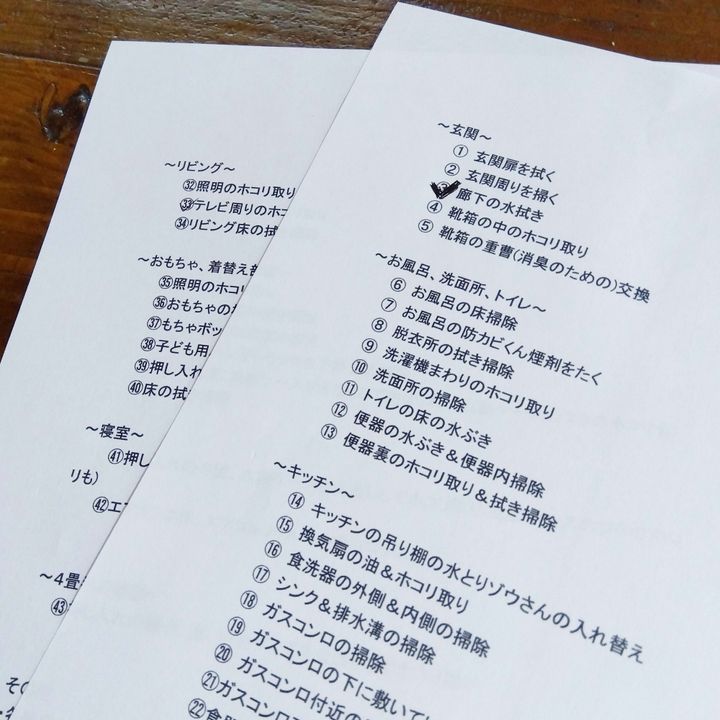 ～玄関～
① 玄関扉を拭く
② 玄関周りを掃く
廊下の水拭き
④ 靴箱の中のホコリ取り
⑤ 靴箱の重曹(消臭のための)交換
～お風呂、洗面所、トイレ～
⑥ お風呂の床掃除
⑦ お風呂の防カビくん煙剤をたく
⑧ 脱衣所の拭き掃除
⑨ 洗濯機まわりのホコリ取り
⑩ 洗面所の掃除
⑪ トイレの床の水ぶき
⑫ 便器の水ぶき＆便器内掃除
⑬ 便器裏のホコリ取り＆拭き掃除
～キッチン～
⑭ キッチンの吊り棚の水とりゾウさんの入れ替え
⑮ 換気扇の油＆ホコリ取り
⑯ 食洗器の外側＆内側の掃除
⑰ シンク＆排水溝の掃除
⑱ ガスコンロの掃除
⑲ ガスコンロの下に敷いて
⑳ ガスコンロ付近の
㉑ガスコンロ
㉒
～リビング～
㉜照明のホコリ取り
㉝テレビ周りのホコ
㉞リビング床の拭
～おもちゃ、着替え
㉟照明のホコリ
㊱おもちゃの
㊲もちゃボッ
㊳子ども用
㊴押し入れ
㊵床の拭
～寝室～
㊶押し
りも)
㊷エ
～4畳
㊸
その